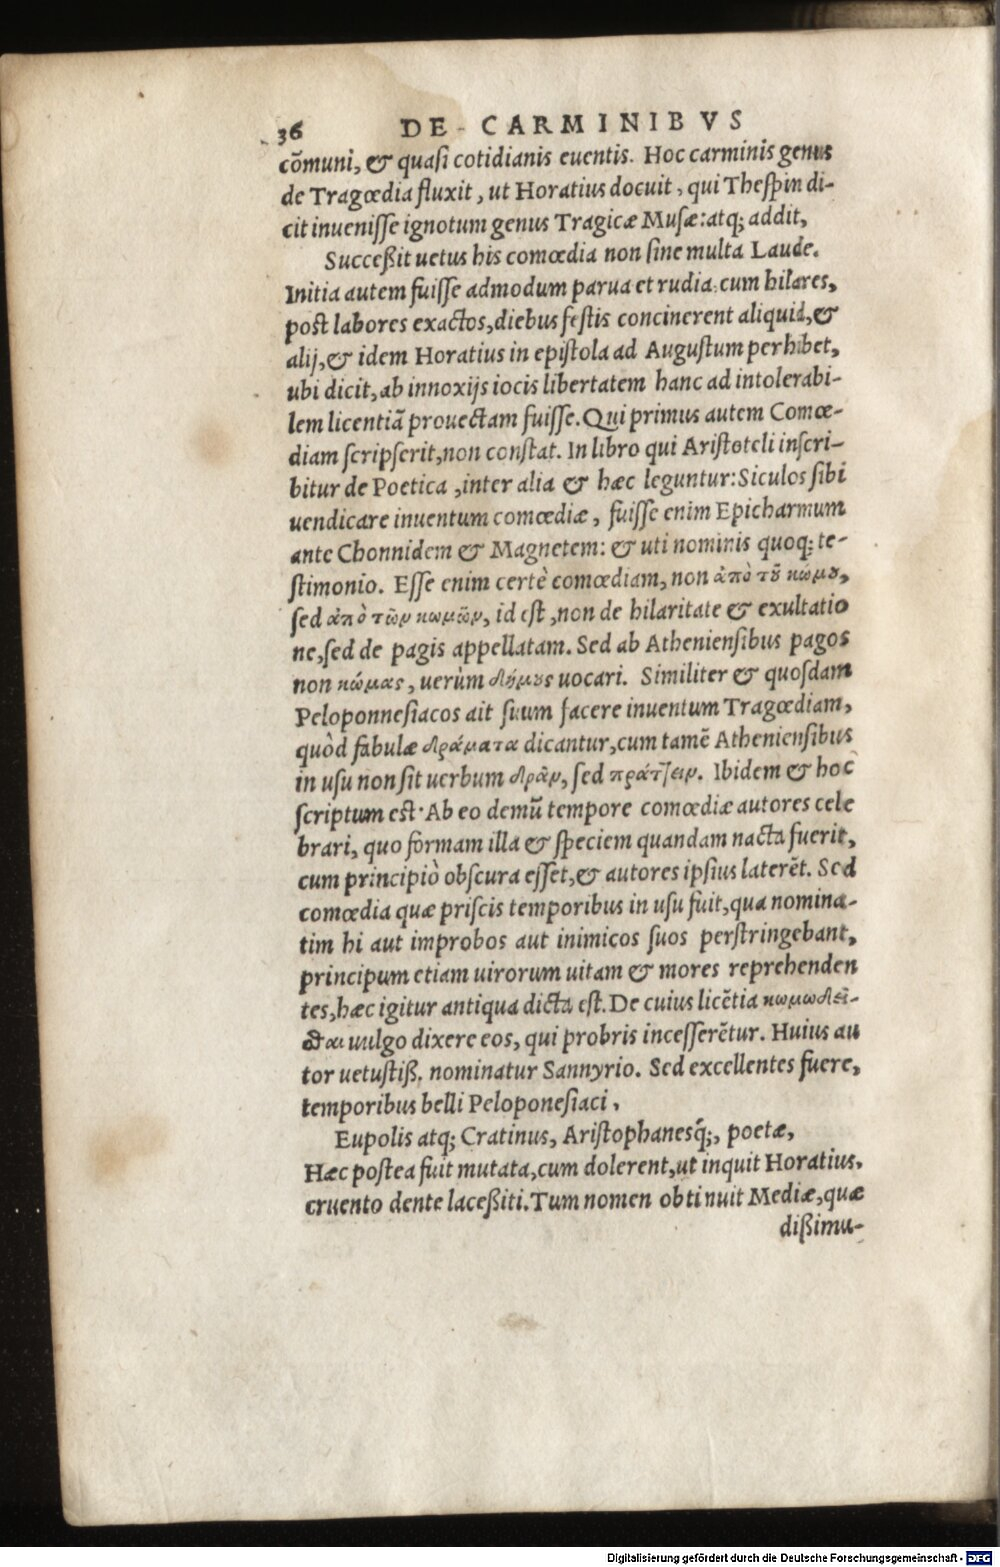 36 DE CARMINIBVS
cõmuni, & quasi cotidianis euentis. Hoc carminis genus
de Tragœdia fluxit, ut Horatius docuit, qui Thespin di-
cit inuenisse ignotum genus Tragicæ Musæ: atq; addit,
Succeßit uetus his comœdia non sine multa Laude.
Initia autem fuisse admodum parua et rudia, cum hilares,
post labores exactos, diebus festis concinerent aliquid, &
alij, & idem Horatius in epistola ad Augustum perhibet,
ubi dicit, ab innoxijs iocis libertatem hanc ad intolerabi-
lem licentiã prouectam fuisse. Qui primus autem Comœ-
diam scripserit, non constat. In libro qui Aristoteli inscri-
bitur de Poetica, inter alia & hæc leguntur: Siculos sibi
uendicare inuentum comœdiæ, fuisse enim Epicharmum
ante Chonnidem & Magnetem: & uti nominis quoq; te-
stimonio. Esse enim certè comœdiam, non ἀπὸ τοῦ κώμου,
sed ἀπὸ τῶν κωμῶν, id est, non de hilaritate & exultatio
ne, sed de pagis appellatam. Sed ab Atheniensibus pagos
non κώμας, uerùm δήμους uocari. Similiter & quosdam
Peloponnesiacos ait suum facere inuentum Tragœdiam,
quòd fabulæ δράματα dicantur, cum tamẽ Atheniensibus
in usu non sit uerbum δρᾶν, sed πράττειν. Ibidem & hoc
scriptum est. Ab eo demũ tempore comœdiæ autores cele
brari, quo formam illa & speciem quandam nacta fuerit,
cum principiò obscura esset, & autores ipsius laterẽt. Sed
comœdia quæ priscis temporibus in usu fuit, qua nomina-
tim hi aut improbos aut inimicos suos perstringebant,
principum etiam uirorum uitam & mores reprehenden
tes, hæc igitur antiqua dicta est. De cuius licẽtia κωμωδεῖ-
σθαι uulgo dixere eos, qui probris incesserẽtur. Huius au
tor uetustiß. nominatur Sannyrio. Sed excellentes fuere,
temporibus belli Peloponesiaci,
Eupolis atq; Cratinus, Aristophanesq́;, poetæ,
Hæc postea fuit mutata, cum dolerent, ut inquit Horatius,
cruento dente laceßiti. Tum nomen obtinuit Mediæ, quæ
dißimu-
Digitalisierung gefördert durch die Deutsche Forschungsgemeinschaft - DFG